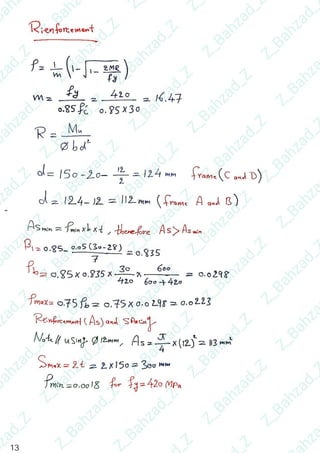 Rienforcement
ρ = 1/m (1-√(1- 2mR/fy))
m = fy/0.85f'c = 420/0.85X30 = 16.47
R = Mu/Øbd²
d = 150-20- 12/2 = 124 mm frame (C and D)
d = 124-12 = 112 mm (frame A and B)
Asmin = ρmin x b x t , therefore As > Asmin
β1 = 0.85- 0.05(30-28)/7 = 0.835
ρb = 0.85 x 0.835 x 30/420 x 600/600+420 = 0.0298
ρmax = 0.75ρb = 0.75 X 0.0298 = 0.0223
Reinforcement (As) and Spacing
Note // using Ø12mm, As = π/4 x (12)² = 113 mm²
Smax = 2t = 2x150 = 300 mm
ρmin = 0.0018 for fy = 420 MPa
13
Z_Bahzad_Z